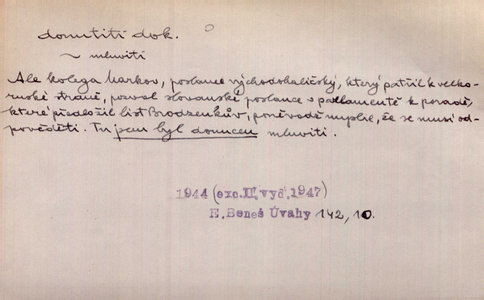 donutiti dok.
~ mluviti
Ale kolega Markov, poslanec východohaličský, který patřil k velko-
ruské straně, pozval slovanské poslance v parlamentě k poradě,
které předložil list Brodzenkův, poněvadž myslie, že se musí od-
pověděti. Tu jsem byl donucen mluviti.
1944 (exc. II. vyd. 1947)
E. Beneš Úvahy 142, 10.